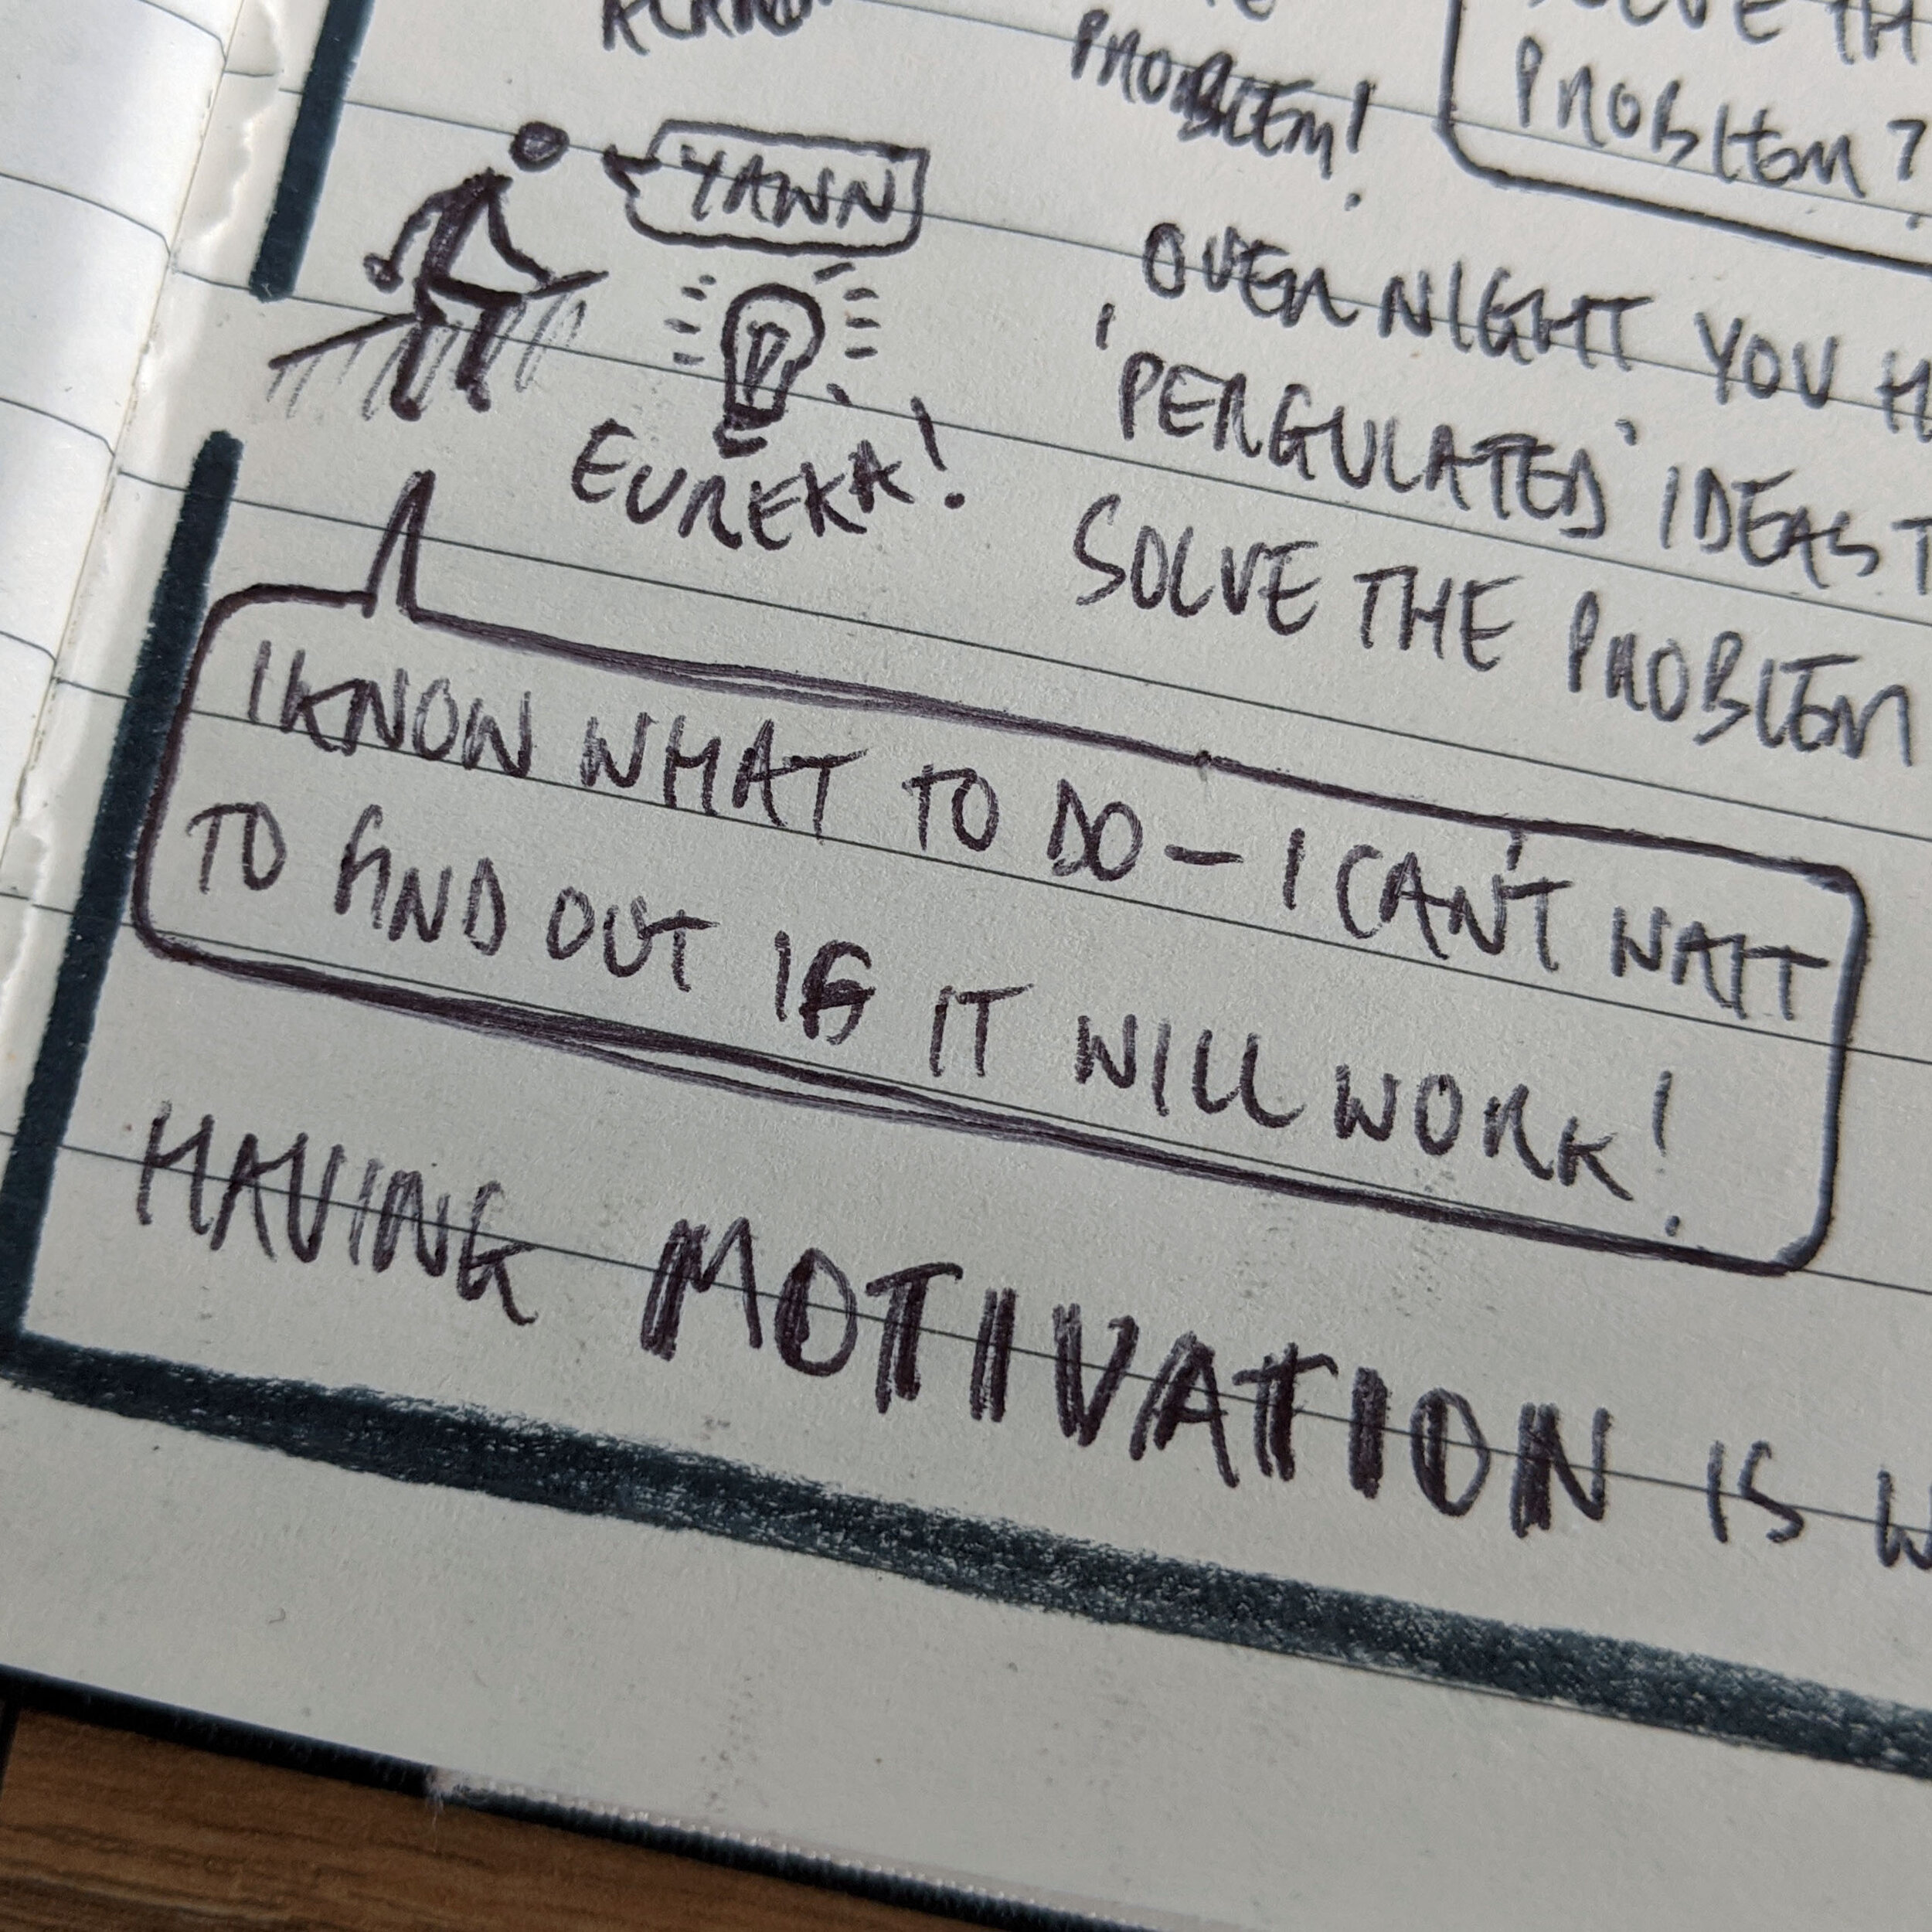 PROBLEM!
SOLVE TH
PROBLEM?
YAWN
EUREKA!
OVERNIGHT YOU H
'PERGULATED' IDEAS T
SOLVE THE PROBLEM
I KNOW WHAT TO DO – I CAN'T WAIT
TO FIND OUT IF IT WILL WORK!
HAVING MOTIVATION IS W